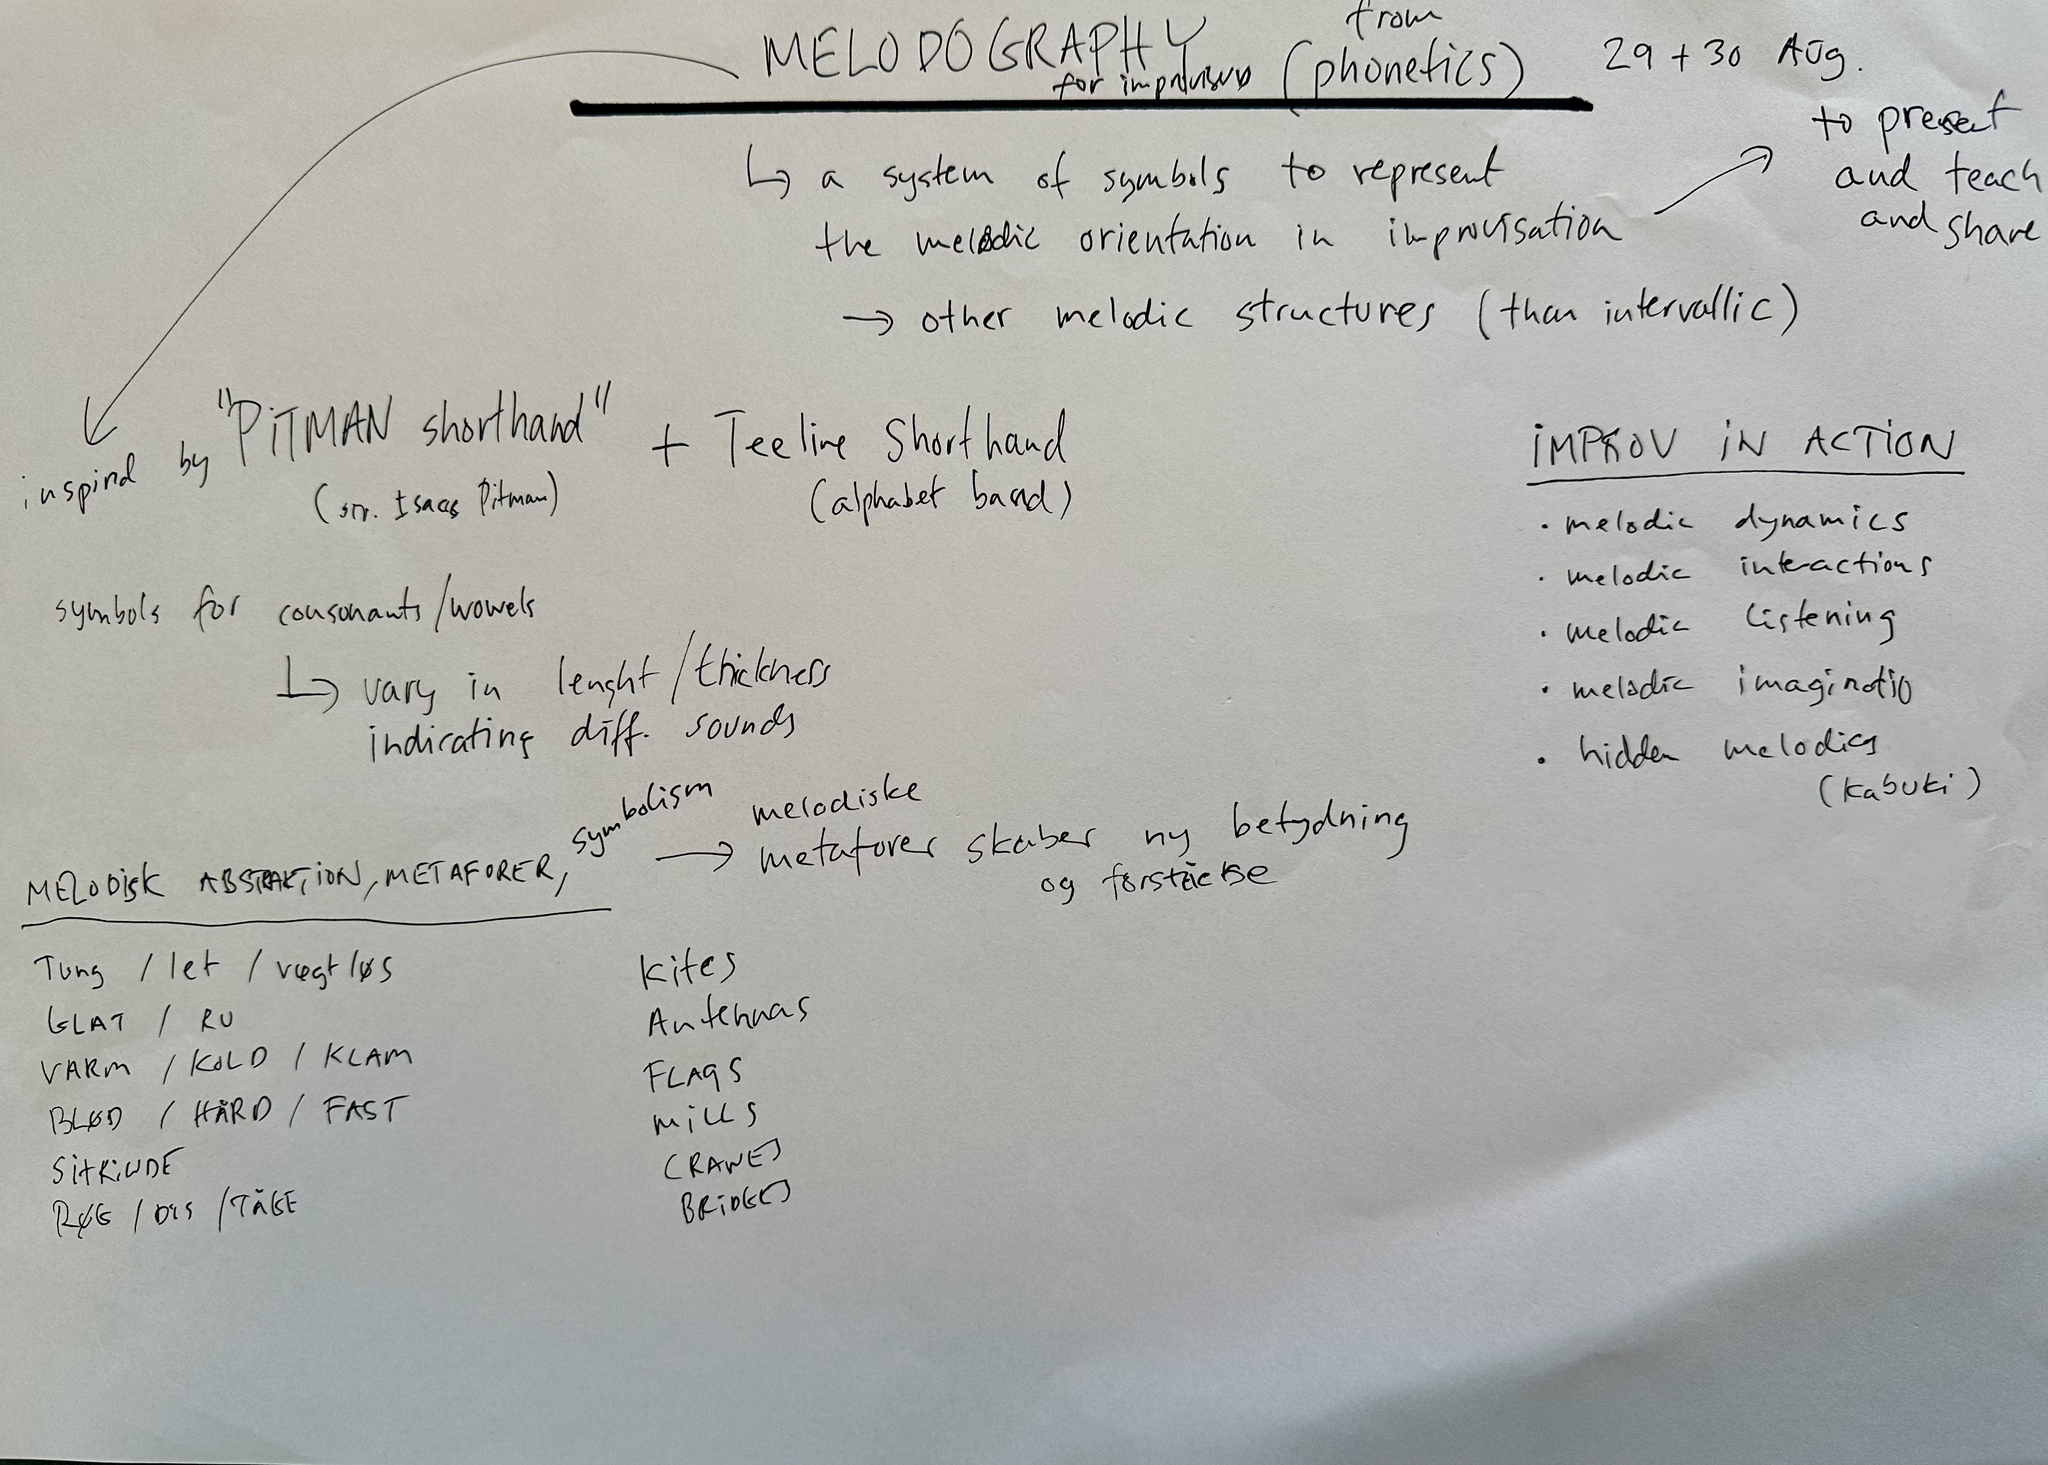 MELODOGRAPHY
for improvised
from
(phonetics)
29 + 30 AUg.
↳ a system of symbols to represent
the melodic orientation in improvisation
→ to present
and teach
and share
→ other melodic structures (than intervallic)
inspired by "PiTMAN shorthand" + Teeline Shorthand
(sir. Isaac Pitman) (alphabet based)
symbols for consonants/wowels
↳ vary in lenght/thickness
indicating diff. sounds
iMPROV iN ACTiON
• melodic dynamics
• melodic interactions
• melodic listening
• melodic imaginatio
• hidden melodies
(Kabuki)
MELODiSK ABSTRAKTiON, METAFORER, symbolism
→ melodiske
metaforer skaber ny betydning
og forståelse
Tung / let / vægtløs
GLAT / RU
VARM / KOLD / KLAM
BLØD / HÅRD / FAST
SiTRENDE
RØG / DIS / TÅGE
Kites
Antennas
FLAgS
MiLLS
CRANES
BRiDGES